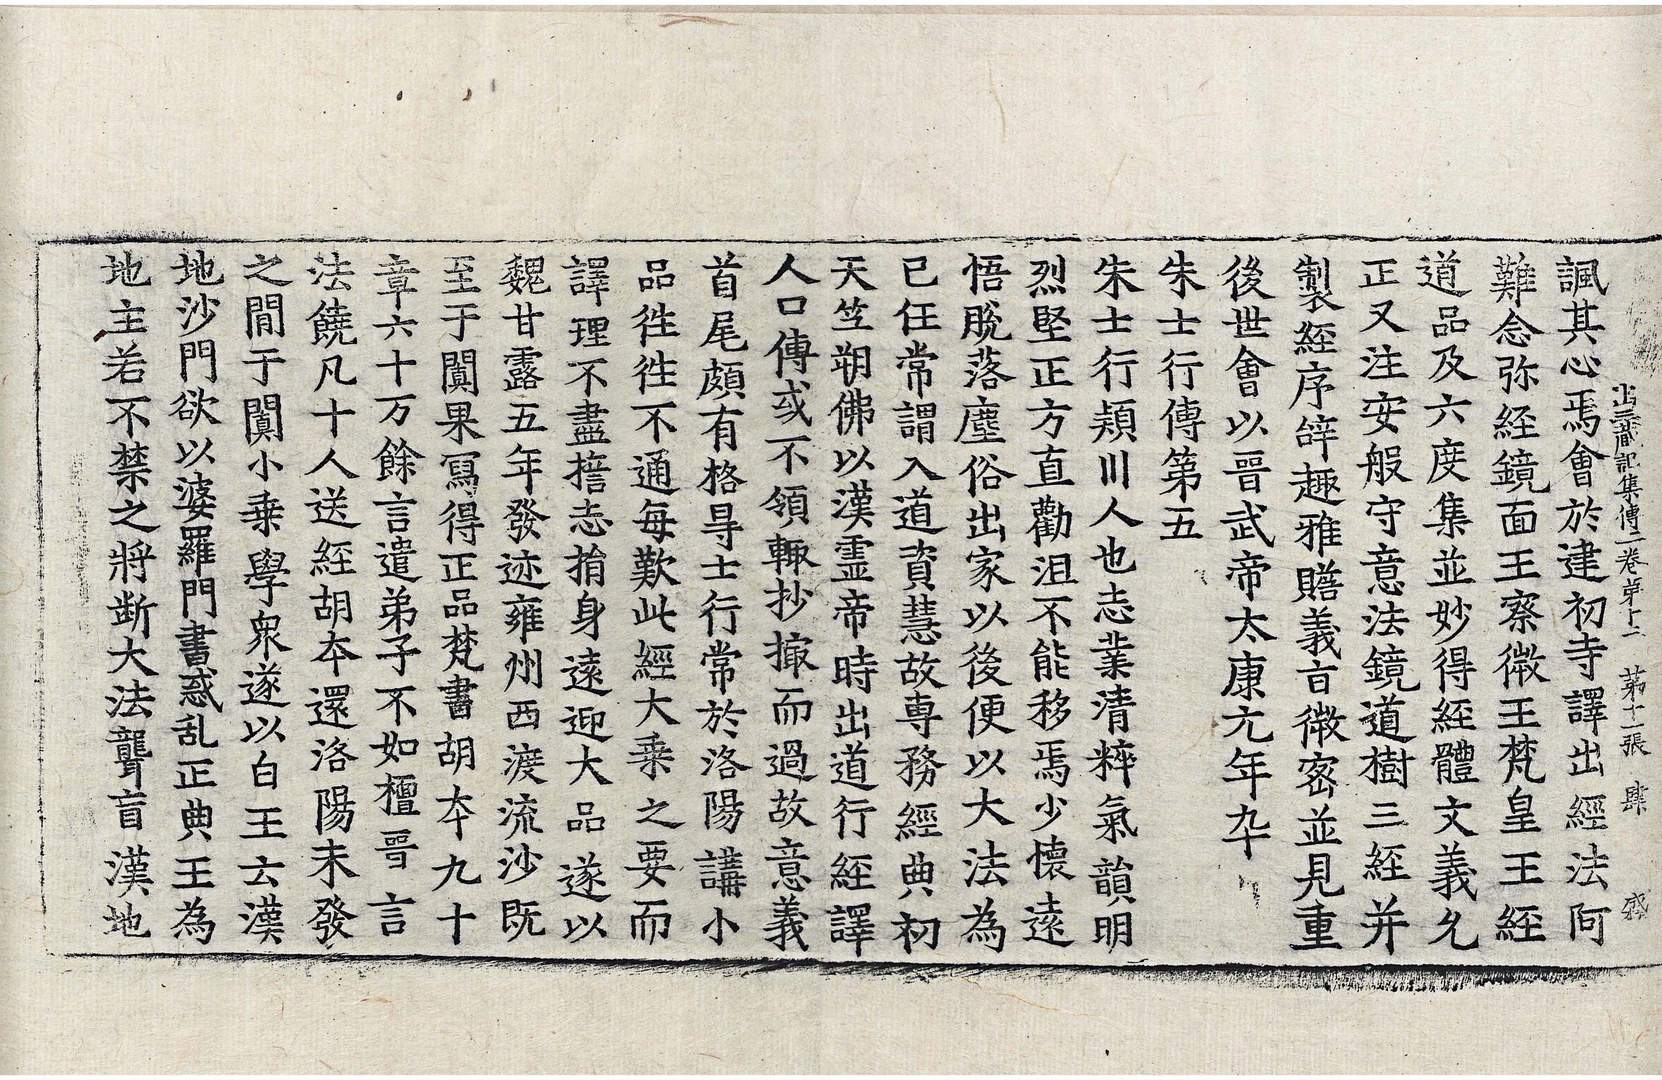 出三藏記集傳二卷苐十二 苐十一張 肆 盛
諷其心焉會於建初寺譯出經法阿
難念弥經鏡面王察微王梵皇王經
道品及六度集並妙得經體文義允
正又注安般守意法鏡道樹三經并
製經序辝趣雅贍義盲微密並見重
後世會以晉武帝太康元年卒
朱士行傳第五
朱士行頴川人也志業清粹氣韻明
烈堅正方直勸沮不能移焉少懷遠
悟脫落塵俗出家以後便以大法為
己任常謂入道資慧故專務經典初
天竺朔佛以漢霊帝時出道行經譯
人口傳或不領輙抄撮而過故意義
首尾頗有格㝵士行常於洛陽講小
品徃徃不通每歎此經大乗之要而
譯理不盡誓志捐身遠迎大品遂以
魏甘露五年發迹雍州西渡流沙既
至于闐果寫得正品梵書胡夲九十
章六十万餘言遣弟子不如檀晉言
法饒凡十人送經胡夲還洛陽未發
之間于闐小乗學衆遂以白王云漢
地沙門欲以婆羅門書惑乱正典王為
地主若不禁之將断大法聾盲漢地